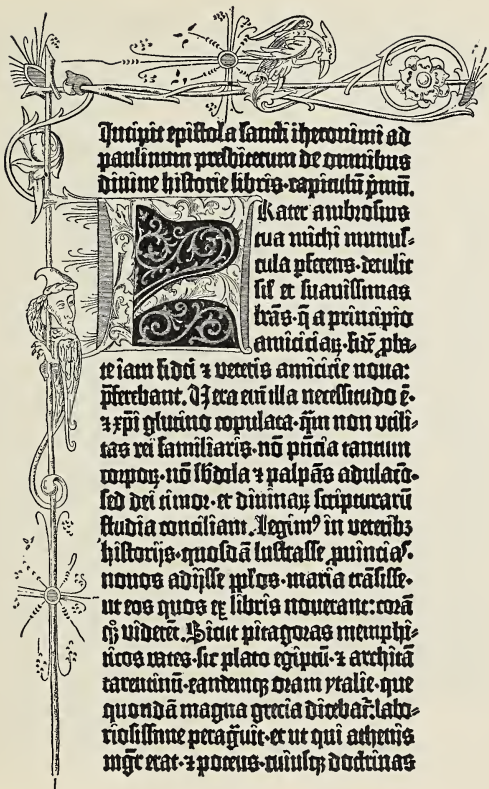 Incipit epistola sancti iheronimi ad
paulinum presbiterum de omnibus
divine historie libris·capitulū p̄mū.
Frater ambrosius
tua michi munus-
cula ꝑferens·detulit
sil̄ et suavissimas
lr̄as·q̄ a principio
amiciciaꝝ·fidē ꝓba-
te iam fidei ⁊ veteris amicicie nova:
p̄ferebant. Uera eni illa necessitudo ē·
⁊ xp̄i glutino copulata·qm̄ non utili-
tas rei familiaris·nō p̄ncia tantum
corpoꝝ·nō sb̄dola ⁊ palpās adulacō·
sed dei timor·et divinaꝝ scripturarū
studia conciliant. Legimꝰ in veteribꝫ
historijs·quosdā lustrasse ꝓuincias·
novos adijsse ppl̄os·maria trāsisse·
ut eos quos ex libris noverant: corā
qꝫ viderēt. Sicut pitagoras memphi-
ticos vates·sic plato egiptū·⁊ architā
tarentinū·eandemqꝫ oram ytalie·que
quondā magna grecia dicebat̄: labo-
riosissime peragūit·et ut qui athenis
mgr̄ erat·⁊ potens·cuiusqꝫ doctrinas